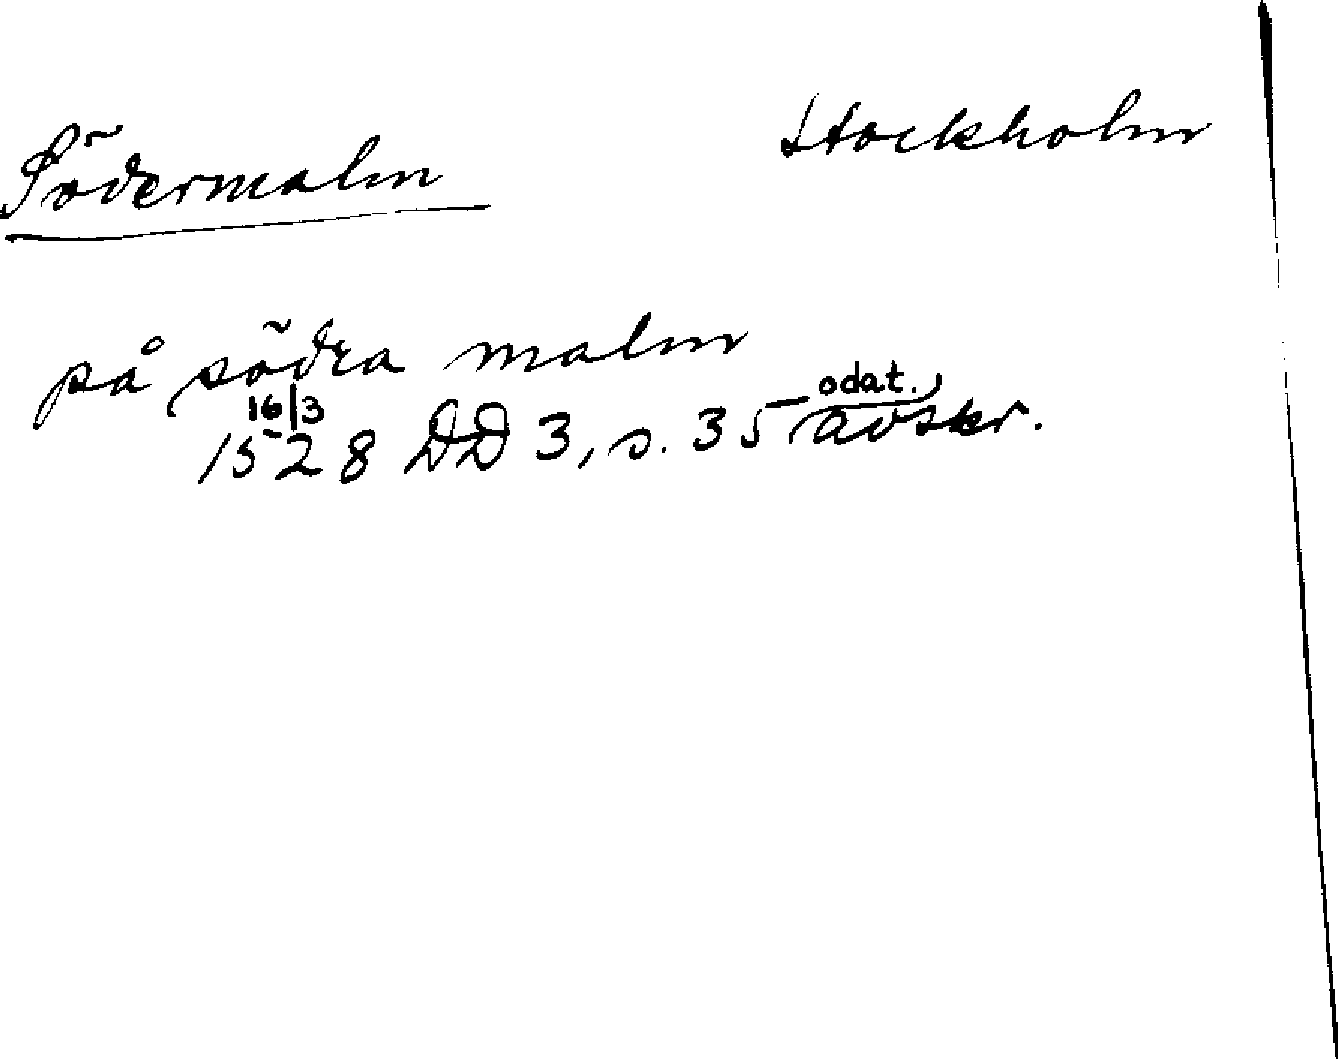 Södermalm
Stockholm
på södra malm
16/3 odat.,
1528 DD 3, s. 35 avskr.